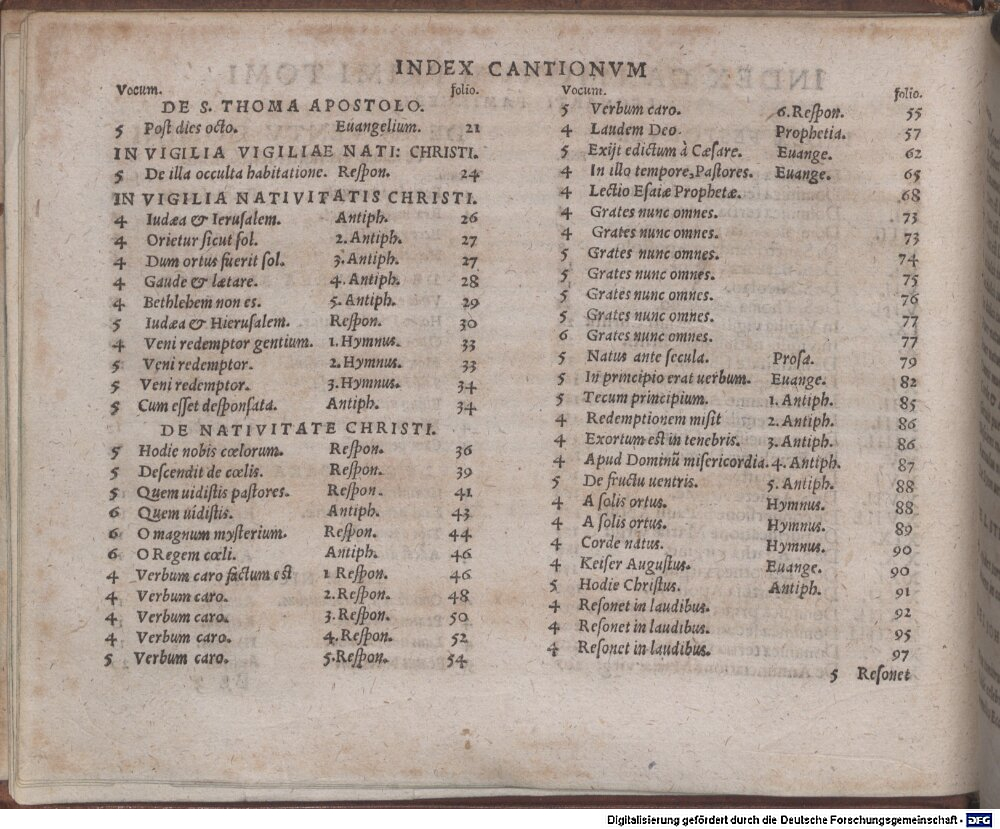 INDEX CANTIONVM
Vocum. folio.
DE S. THOMA APOSTOLO.
5 Poſt dies octo. Euangelium. 21
IN VIGILIA VIGILIAE NATI: CHRISTI.
5 De illa occulta habitatione. Reſpon. 24
IN VIGILIA NATIVITATIS CHRISTI.
4 Iudæa & Ieruſalem. Antiph. 26
4 Orietur ſicut ſol. 2. Antiph. 27
4 Dum ortus fuerit ſol. 3. Antiph. 27
4 Gaude & lætare. 4. Antiph. 28
4 Bethlehem non es. 5. Antiph. 29
5 Iudæa & Hieruſalem. Reſpon. 30
4 Veni redemptor gentium. 1. Hymnus. 33
5 Veni redemptor. 2. Hymnus. 33
5 Veni redemptor. 3. Hymnus. 34
5 Cum eſſet deſponſata. Antiph. 34
DE NATIVITATE CHRISTI.
5 Hodie nobis cœlorum. Reſpon. 36
5 Deſcendit de cœlis. Reſpon. 39
5 Quem uidiſtis paſtores. Reſpon. 41
6 Quem uidiſtis. Antiph. 43
6 O magnum myſterium. Reſpon. 44
6 O Regem cœli. Antiph. 46
4 Verbum caro factum eſt 1 Reſpon. 46
4 Verbum caro. 2. Reſpon. 48
4 Verbum caro. 3. Reſpon. 50
4 Verbum caro. 4. Reſpon. 52
5 Verbum caro. 5. Reſpon. 54
Vocum. folio.
5 Verbum caro. 6. Reſpon. 55
4 Laudem Deo. Prophetia. 57
5 Exijt edictum à Cæſare. Euange. 62
4 In illo tempore, Paſtores. Euange. 65
4 Lectio Eſaiæ Prophetæ. 68
4 Grates nunc omnes. 73
4 Grates nunc omnes. 73
5 Grates nunc omnes. 74
5 Grates nunc omnes. 75
5 Grates nunc omnes. 76
5 Grates nunc omnes. 77
6 Grates nunc omnes. 77
5 Natus ante ſecula. Proſa. 79
5 In principio erat uerbum. Euange. 82
5 Tecum principium. 1. Antiph. 85
4 Redemptionem miſit 2. Antiph. 86
4 Exortum eſt in tenebris. 3. Antiph. 86
4 Apud Dominũ miſericordia. 4. Antiph. 87
5 De fructu uentris. 5. Antiph. 88
4 A ſolis ortus. Hymnus. 88
4 A ſolis ortus. Hymnus. 89
4 Corde natus. Hymnus. 90
4 Keiſer Auguſtus. Euange. 90
5 Hodie Chriſtus. Antiph. 91
4 Reſonet in laudibus. 92
4 Reſonet in laudibus. 95
4 Reſonet in laudibus. 97
5 Reſonet
Digitalisierung gefördert durch die Deutsche Forschungsgemeinschaft - DFG